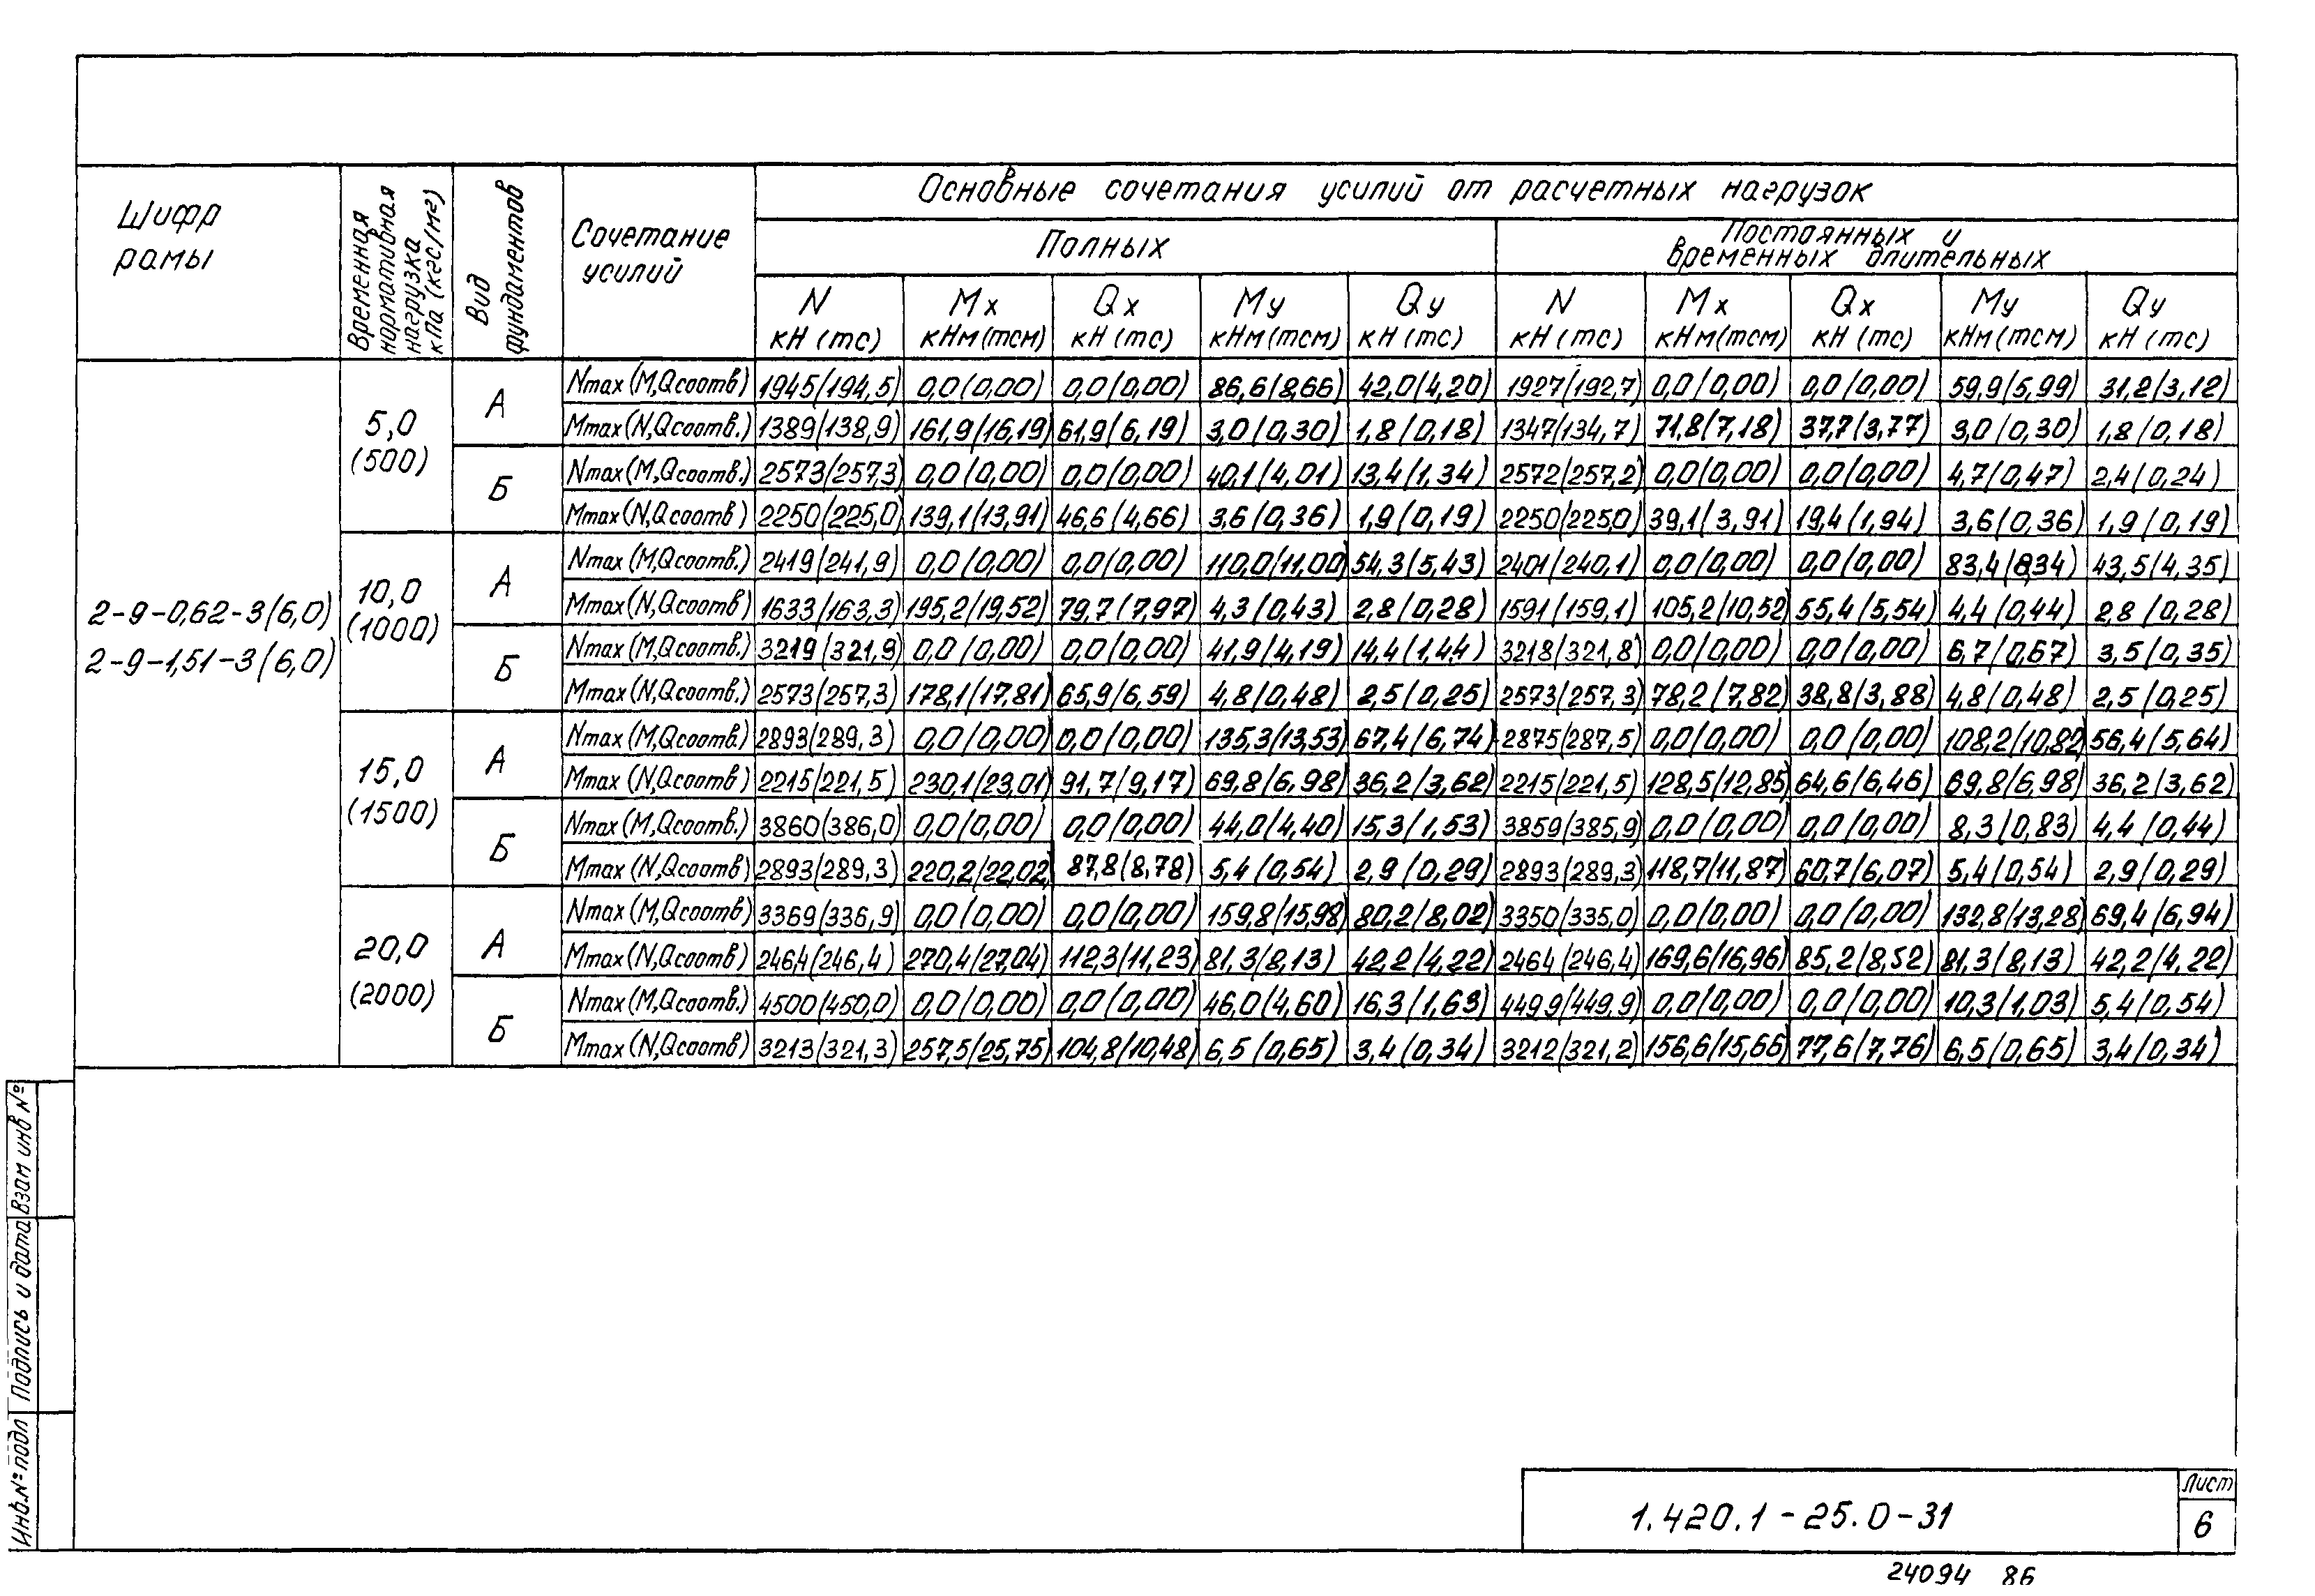 Шифр рамы
Временная нормативная нагрузка кПа (кгс/м²)
Вид фундаментов
Сочетание усилий
Основные сочетания усилий от расчетных нагрузок
Полных
Постоянных и временных длительных
N кН (тс) Mx кНм (тсм) Qx кН (тс) My кНм (тсм) Qy кН (тс) N кН (тс) Mx кНм (тсм) Qx кН (тс) My кНм (тсм) Qy кН (тс)
2-9-0,62-3(6,0)
2-9-1,51-3(6,0)
5,0 (500)
А
Nmax (M,Qсоотв) 1945(194,5) 0,0(0,00) 0,0(0,00) 86,6(8,66) 42,0(4,20) 1927(192,7) 0,0(0,00) 0,0(0,00) 59,9(5,99) 31,2(3,12)
Mmax (N,Qсоотв.) 1389(138,9) 161,9(16,19) 61,9(6,19) 3,0(0,30) 1,8(0,18) 1347(134,7) 71,8(7,18) 37,7(3,77) 3,0(0,30) 1,8(0,18)
Б
Nmax (M,Qсоотв.) 2573(257,3) 0,0(0,00) 0,0(0,00) 40,1(4,01) 13,4(1,34) 2572(257,2) 0,0(0,00) 0,0(0,00) 4,7(0,47) 2,4(0,24)
Mmax (N,Qсоотв) 2250(225,0) 139,1(13,91) 46,6(4,66) 3,6(0,36) 1,9(0,19) 2250(225,0) 39,1(3,91) 19,4(1,94) 3,6(0,36) 1,9(0,19)
10,0 (1000)
А
Nmax (M,Qсоотв.) 2419(241,9) 0,0(0,00) 0,0(0,00) 110,0(11,00) 54,3(5,43) 2401(240,1) 0,0(0,00) 0,0(0,00) 83,4(8,34) 43,5(4,35)
Mmax (N,Qсоотв) 1633(163,3) 195,2(19,52) 79,7(7,97) 4,3(0,43) 2,8(0,28) 1591(159,1) 105,2(10,52) 55,4(5,54) 4,4(0,44) 2,8(0,28)
Б
Nmax (M,Qсоотв.) 3219(321,9) 0,0(0,00) 0,0(0,00) 41,9(4,19) 14,4(1,44) 3218(321,8) 0,0(0,00) 0,0(0,00) 6,7(0,67) 3,5(0,35)
Mmax (N,Qсоотв.) 2573(257,3) 178,1(17,81) 65,9(6,59) 4,8(0,48) 2,5(0,25) 2573(257,3) 78,2(7,82) 38,8(3,88) 4,8(0,48) 2,5(0,25)
15,0 (1500)
А
Nmax (M,Qсоотв.) 2893(289,3) 0,0(0,00) 0,0(0,00) 135,3(13,53) 67,4(6,74) 2875(287,5) 0,0(0,00) 0,0(0,00) 108,2(10,82) 56,4(5,64)
Mmax (N,Qсоотв) 2215(221,5) 230,1(23,01) 91,7(9,17) 69,8(6,98) 36,2(3,62) 2215(221,5) 128,5(12,85) 64,6(6,46) 69,8(6,98) 36,2(3,62)
Б
Nmax (M,Qсоотв.) 3860(386,0) 0,0(0,00) 0,0(0,00) 44,0(4,40) 15,3(1,53) 3859(385,9) 0,0(0,00) 0,0(0,00) 8,3(0,83) 4,4(0,44)
Mmax (N,Qсоотв) 2893(289,3) 220,2(22,02) 87,8(8,78) 5,4(0,54) 2,9(0,29) 2893(289,3) 118,7(11,87) 60,7(6,07) 5,4(0,54) 2,9(0,29)
20,0 (2000)
А
Nmax (M,Qсоотв) 3369(336,9) 0,0(0,00) 0,0(0,00) 159,8(15,98) 80,2(8,02) 3350(335,0) 0,0(0,00) 0,0(0,00) 132,8(13,28) 69,4(6,94)
Mmax (N,Qсоотв) 2464(246,4) 270,4(27,04) 112,3(11,23) 81,3(8,13) 42,2(4,22) 2464(246,4) 169,6(16,96) 85,2(8,52) 81,3(8,13) 42,2(4,22)
Б
Nmax (M,Qсоотв.) 4500(450,0) 0,0(0,00) 0,0(0,00) 46,0(4,60) 16,3(1,63) 4499(449,9) 0,0(0,00) 0,0(0,00) 10,3(1,03) 5,4(0,54)
Mmax (N,Qсоотв) 3213(321,3) 257,5(25,75) 104,8(10,48) 6,5(0,65) 3,4(0,34) 3212(321,2) 156,6(15,66) 77,6(7,76) 6,5(0,65) 3,4(0,34)
Взам инв №
Подпись и дата
Инв.№ подл
1.420.1-25.0-31
Лист
6
24094 86